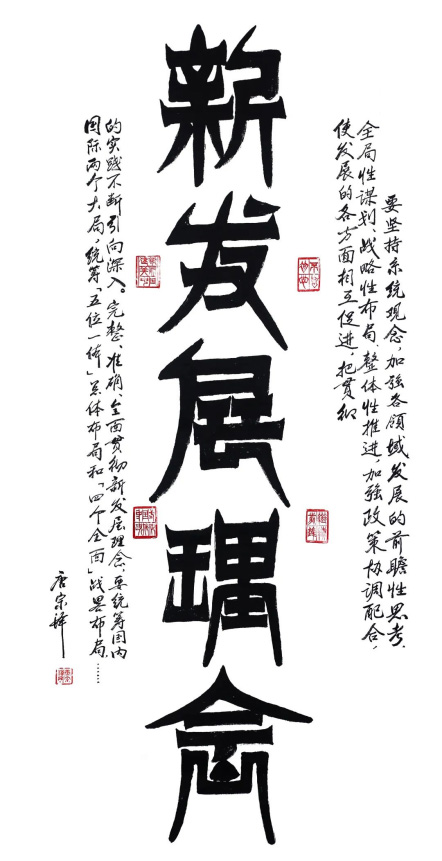 要坚持系统观念，加强各领域发展的前瞻性思考、
全局性谋划、战略性布局、整体性推进，加强政策协调配合，
使发展的各方面相互促进，把贯彻
新发展理念
的实践不断引向深入。完整、准确、全面贯彻新发展理念，要统筹国内
国际两个大局，统筹「五位一体」总体布局和「四个全面」战略布局……
唐宗